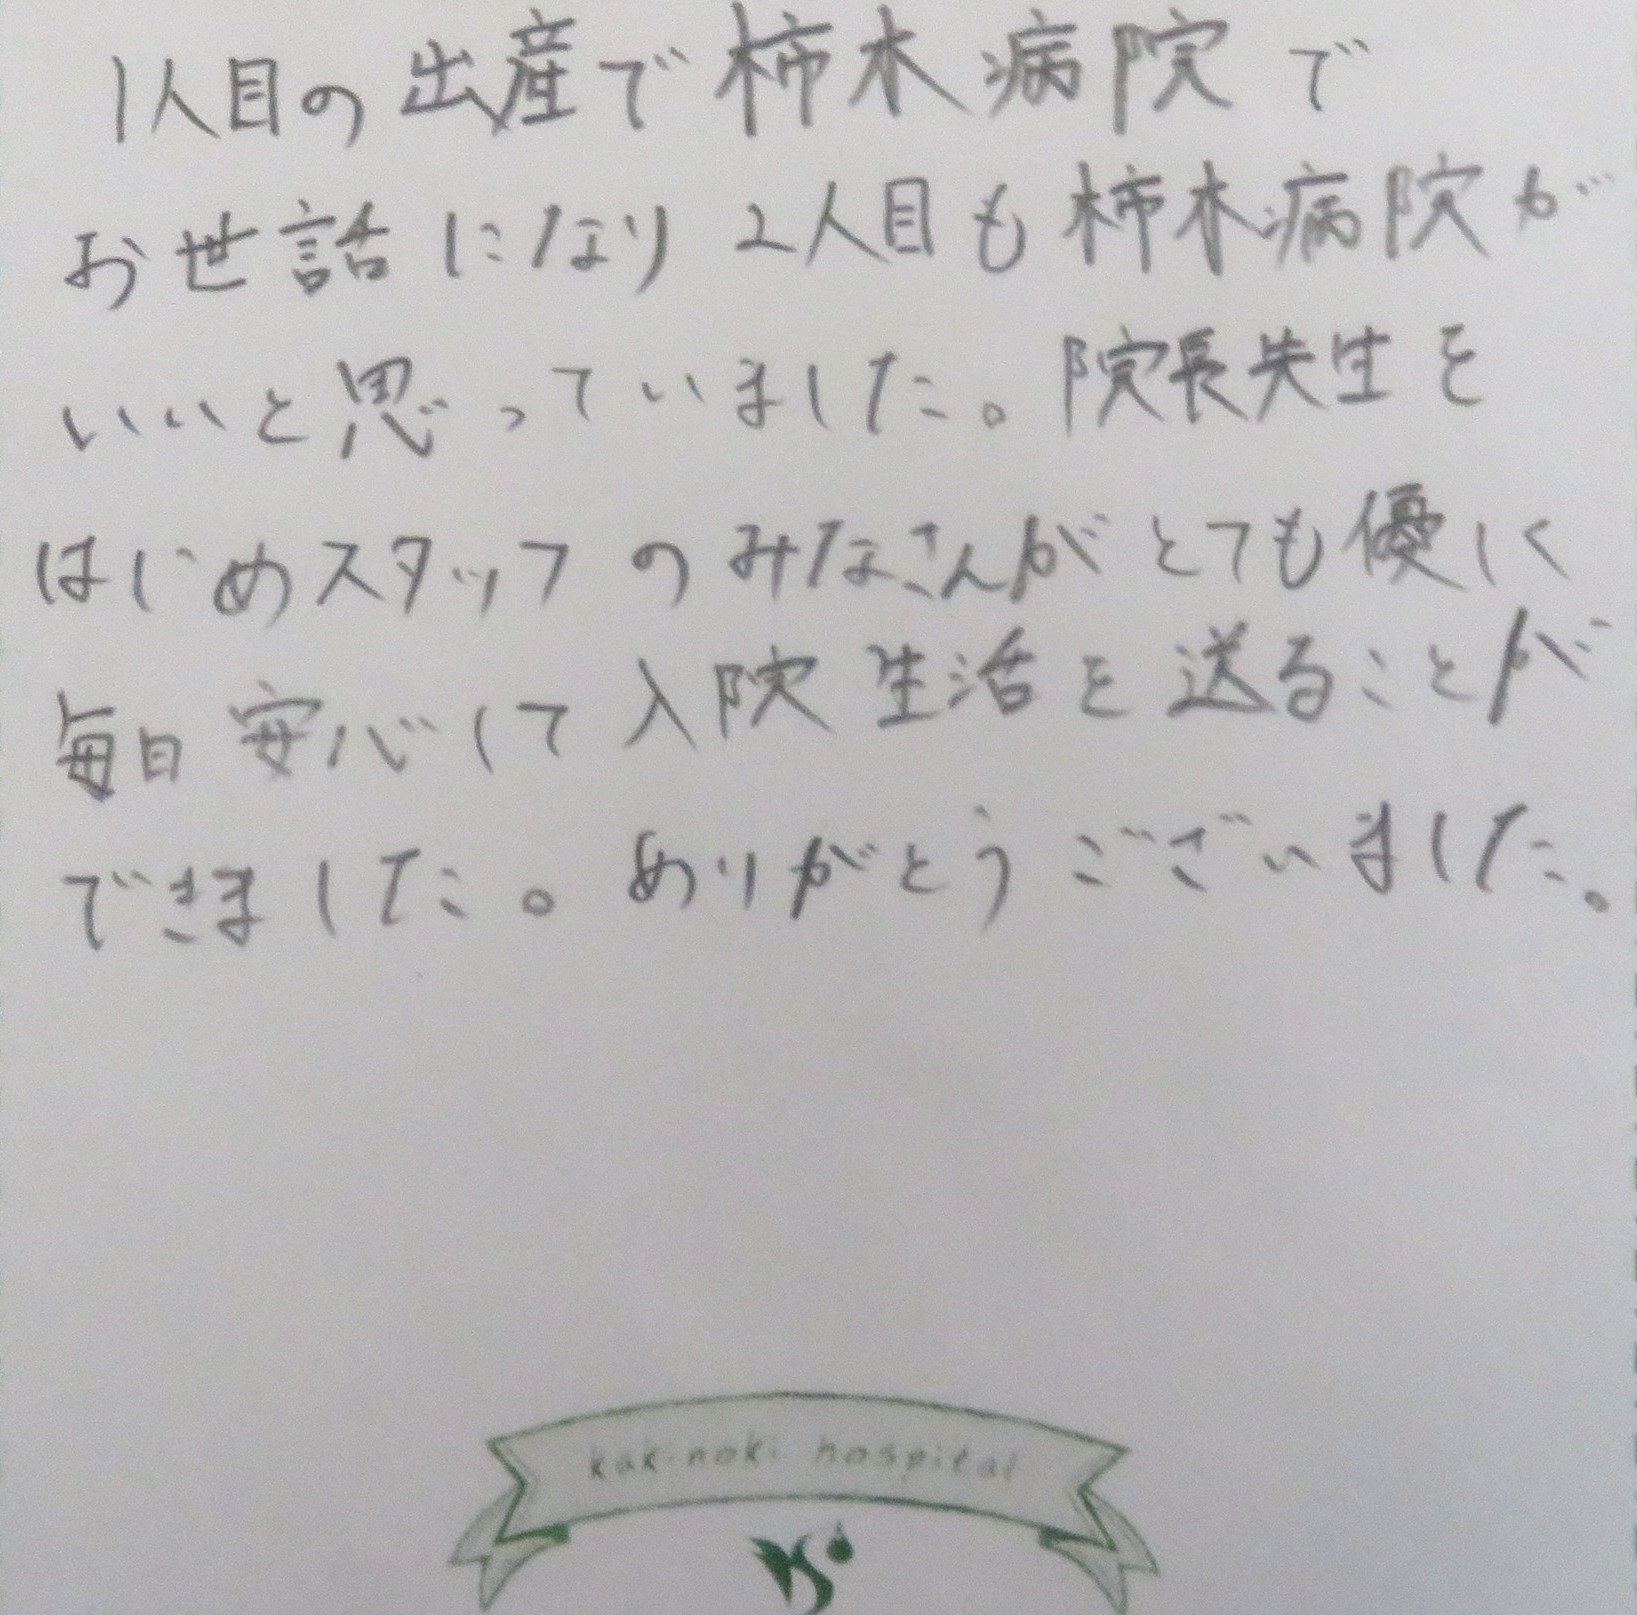 1人目の出産で柿木病院で
お世話になり2人目も柿木病院が
いいと思っていました。院長先生を
はじめスタッフのみなさんがとても優しく
毎日安心して入院生活を送ることが
できました。ありがとうございました。
kakinoki hospital